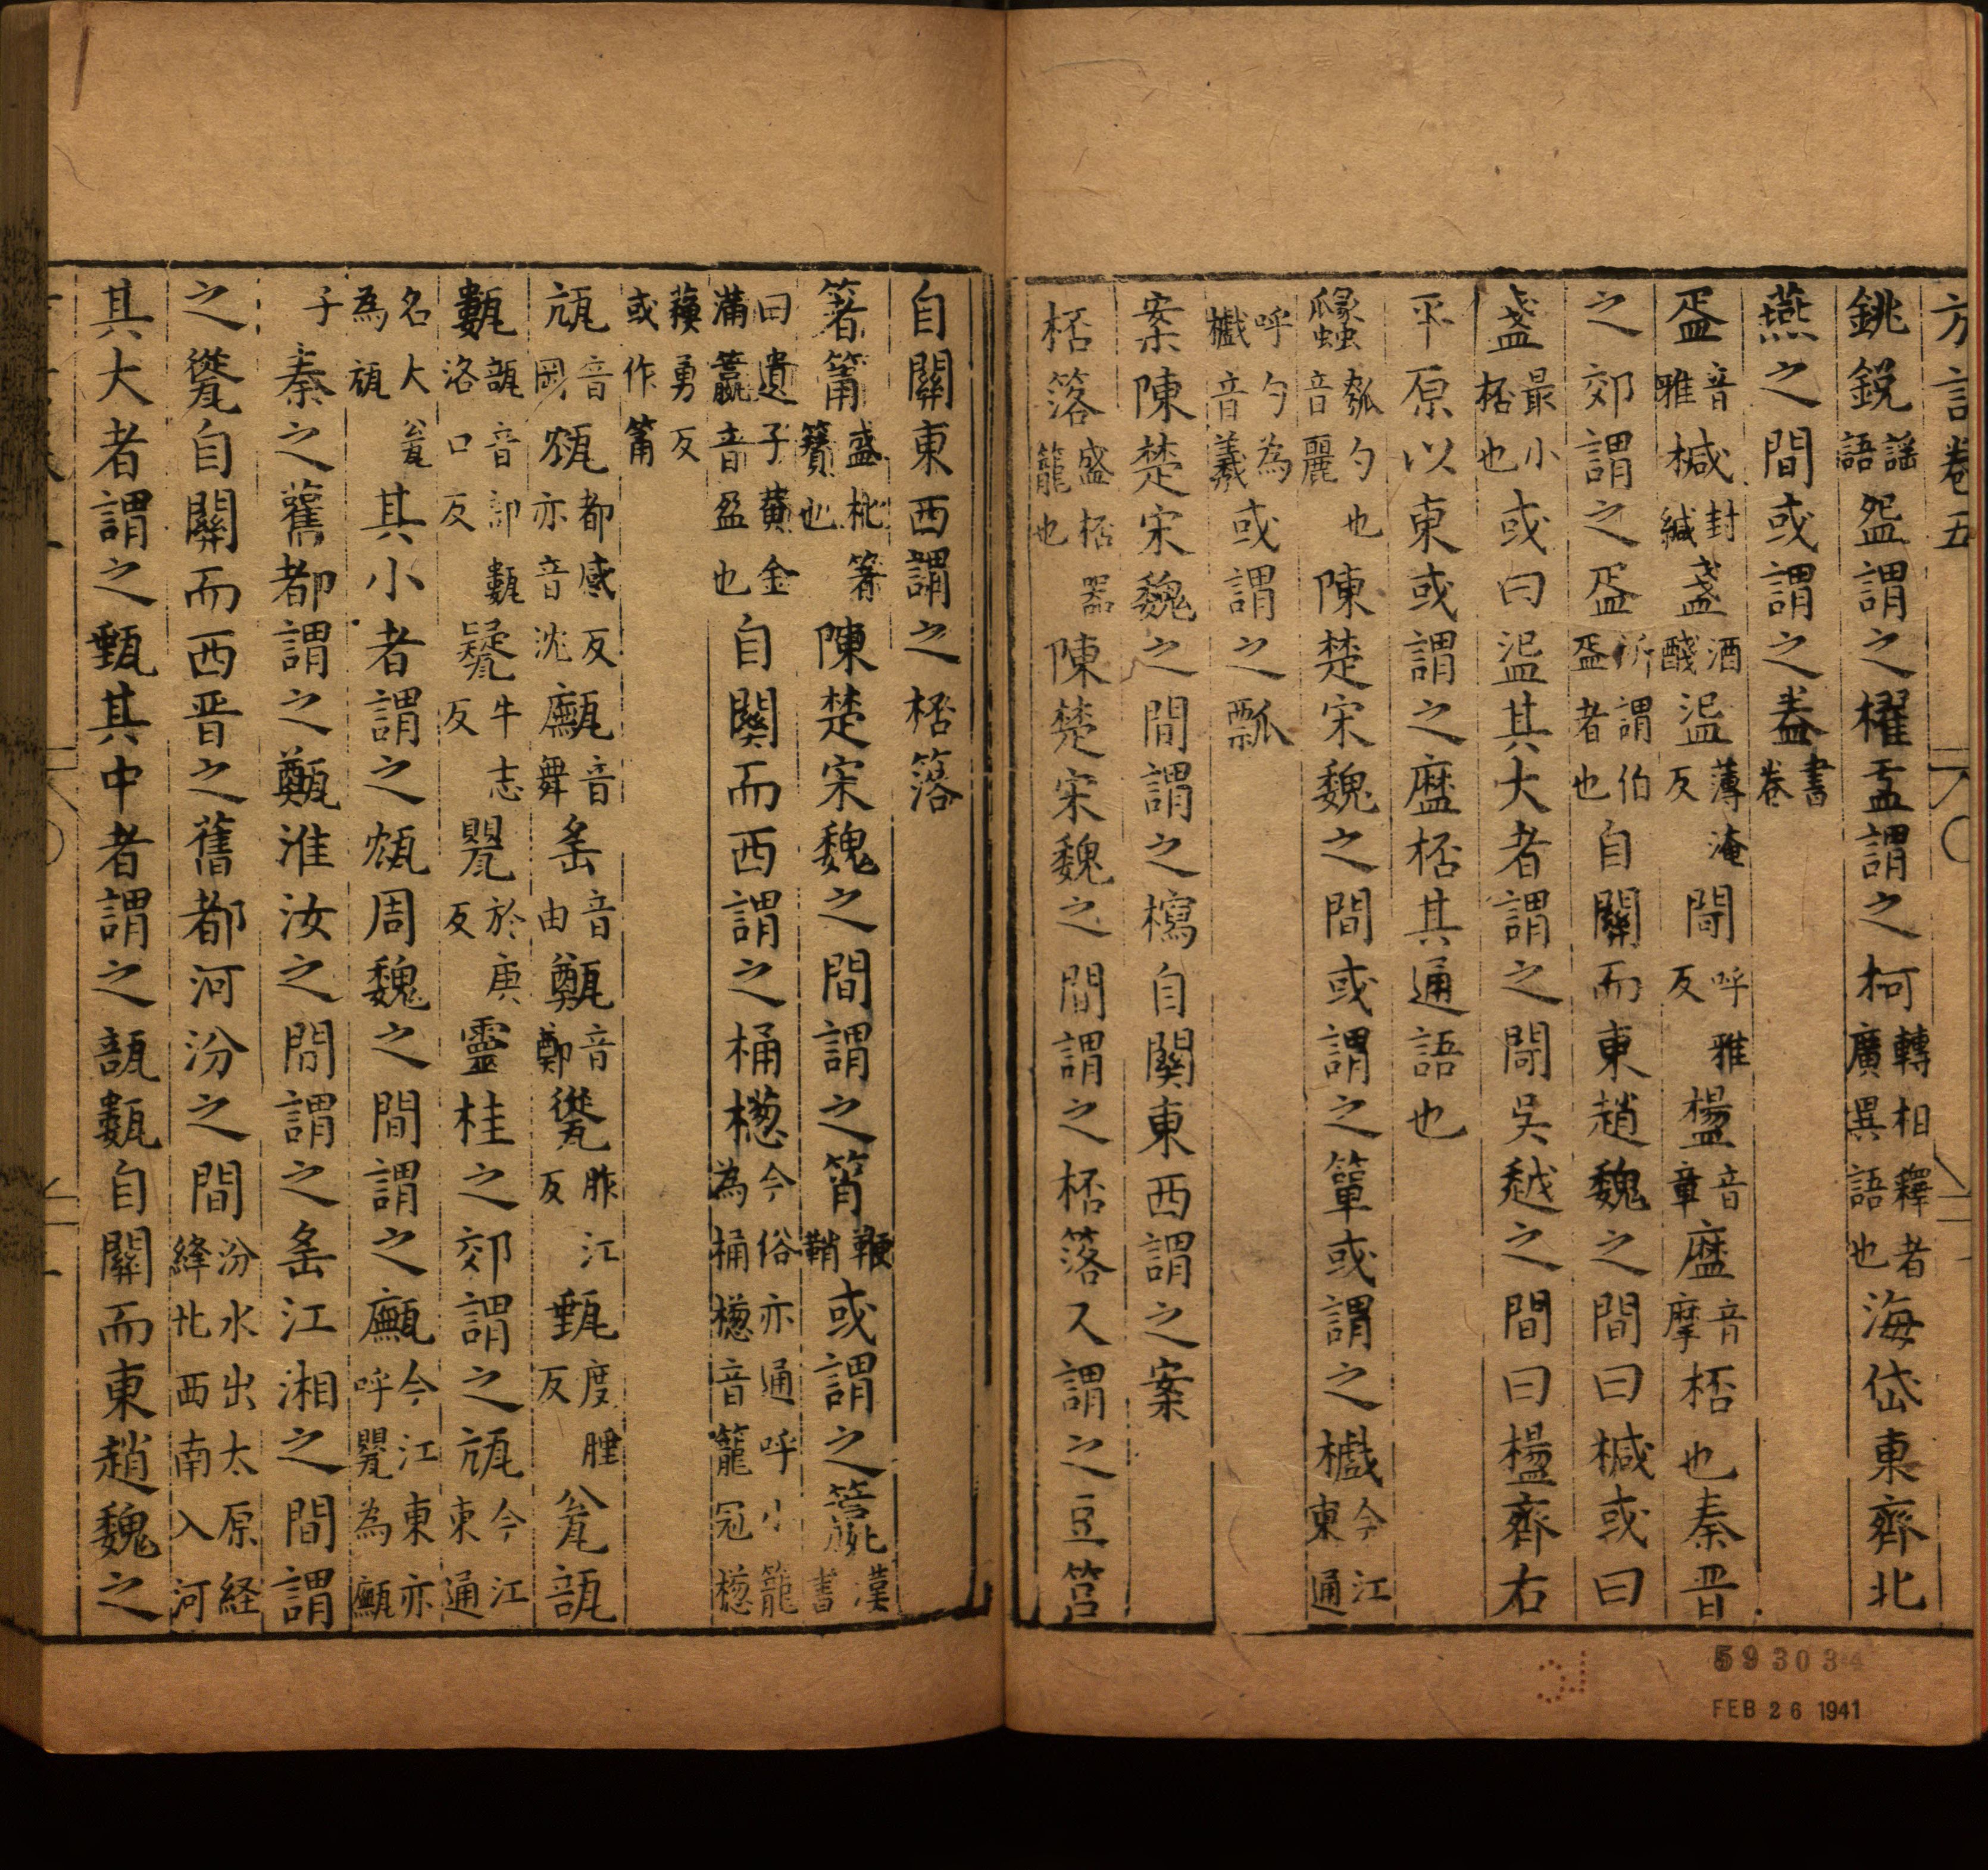 方言卷五
銚銳謡語㿿謂之櫂盂謂之柯轉相釋者廣異語也海岱東齊北
燕之間或謂之盎書卷
㿿音雅械封緘盞酒醆𥁑薄淹反閜呼雅反㯬音章㽎音摩桮也秦晉
之郊謂之㿿所謂伯㿿者也自關而東趙魏之間曰械或曰
盞最小桮也或曰𥁑其大者謂之閜吳越之間曰㯬齊右
平原以東或謂之㽎桮其通語也
瓠勺也音麗陳楚宋魏之間或謂之簞或謂之㰕今江東通
呼勺為㰕音羲或謂之瓢
案陳楚宋魏之間謂之㯕自關東西謂之案
桮落盛桮器籠也陳楚宋魏之間謂之桮落又謂之豆筥
自關東西謂之桮落
箸筩盛朼箸籫也陳楚宋魏之間謂之筲鞭鞘或謂之籯漢書
曰遺子黃金滿籯音盈也自關而西謂之桶檧今俗亦通呼小籠為桶檧音籠冠檧
蘓勇反或作筩
瓬音岡㼜都感反亦音沈甒音舞䍃音由鄭音鄭㽀胙江反甀度腄反瓮瓿
甊瓿音部甊洛口反牛志反罌於庚反靈桂之郊謂之瓬今江東通
名大瓮為瓬其小者謂之㼜周魏之間謂之甒今江東亦呼罌為甒
子
秦之舊都謂之淮汝之間謂之䍃江湘之間謂
之㽀自關而西晉之舊都河汾之間汾水出太原経絳北西南入河
其大者謂之甀其中者謂之瓿甊自關而東趙魏之
593034
FEB 26 1941